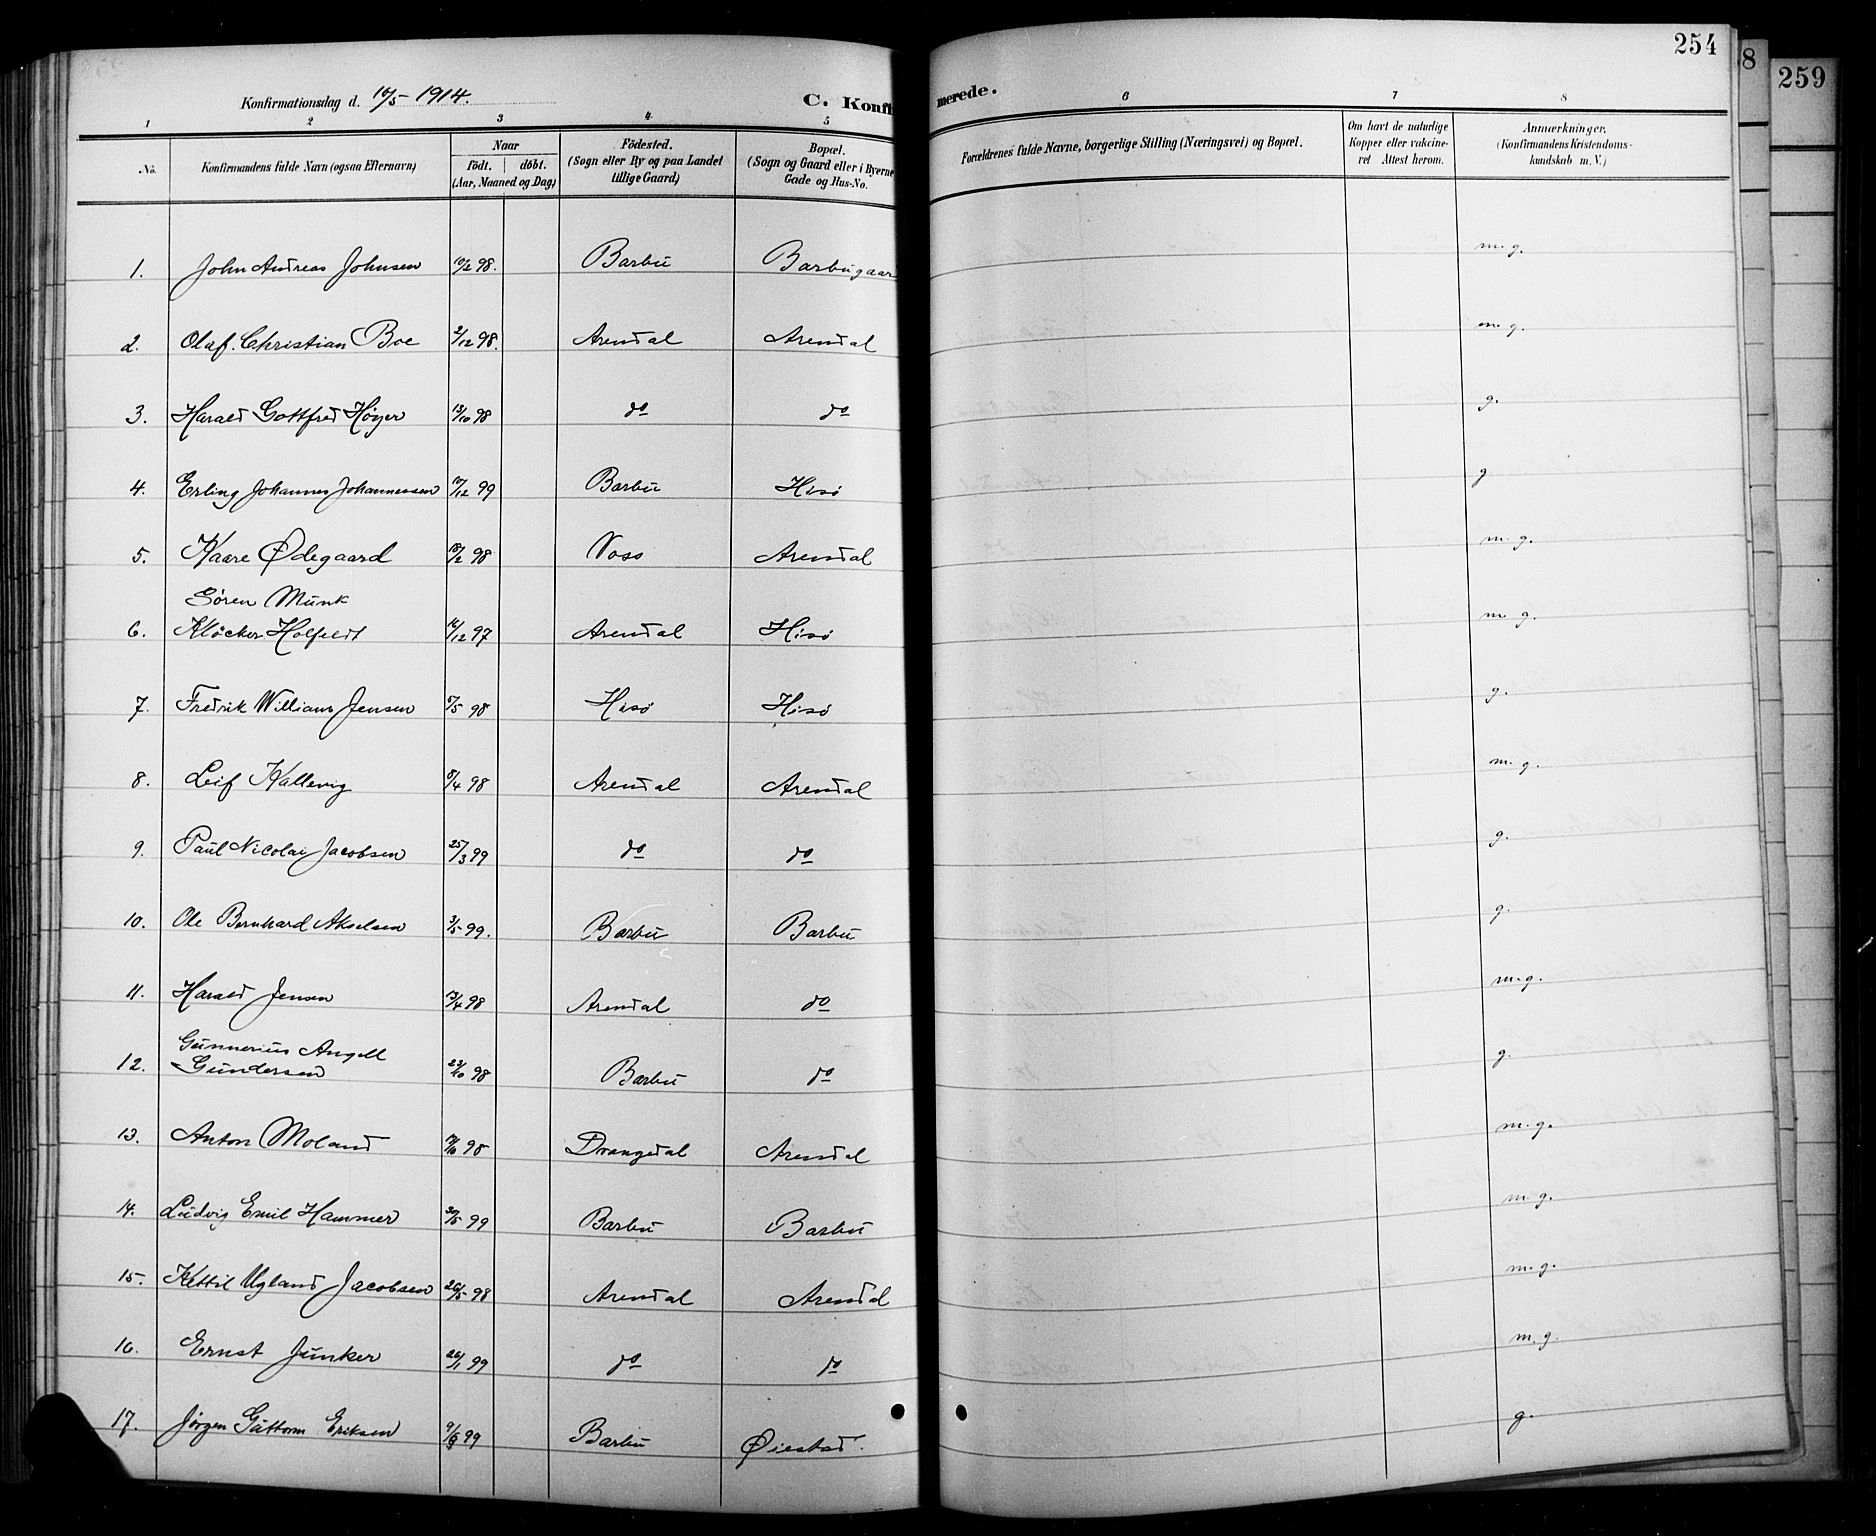 254
8
259
Konfirmationsdag d. 10/5-1914.
C. Konfir
merede.
1 2 3 4 5 6 7 8
No. Konfirmandens fulde Navn (ogsaa Efternavn) Naar Födt. döbt. (Aar, Maaned og Dag) Födested. (Sogn eller By og paa Landet tillige Gaard) Bopæl. (Sogn og Gaard eller i Byerne Gade og Hus-No. Forældrenes fulde Navne, borgerlige Stilling (Næringsvei) og Bopæl. Om havt de naturlige Kopper eller vakcineret Attest herom. Anmærkninger. (Konfirmandens Kristendomskundskab m. V.)
1. John Andreas Johnsen 10/2 98. Barbu Barbugaar m. g.
2. Olaf Christian Boe 2/12 98. Arendal Arendal m. g.
3. Harald Gottfred Høyer 13/10 98 do do g.
4. Erling Johannes Johannessen 10/12 99 Barbu Hisö g
5. Kaare Ødegaard 18/2 98 Voss Arendal m. g.
Sören Munk
6. Klöcker Holfeldt 14/12 97 Arendal Hisö m. g.
7. Fredrik William Jensen 5/5 98 Hisö Hisö g.
8. Leif Kallevig 8/4 98 Arendal Arendal m. g.
9. Paul Nicolai Jacobsen 25/3 99 do do g.
10. Ole Bernhard Akselsen 3/5 99. Barbu Barbu g.
11. Harald Jensen 13/4 98 Arendal do m. g.
Gunnerius Angell
12. Gundersen 23/10 98 Barbu do g.
13. Anton Moland 98 Drangedal Arendal m. g.
14. Ludvig Emil Hammer 30/5 99 Barbu Barbu m. g.
15. Kettil Ugland Jacobsen 26/5 98 Arendal Arendal m. g.
16. Ernst Junker 26/1 99 do do m. g.
17. Jörgen Guttorm Eriksen 9/8 99 Barbu Øiestad. g.